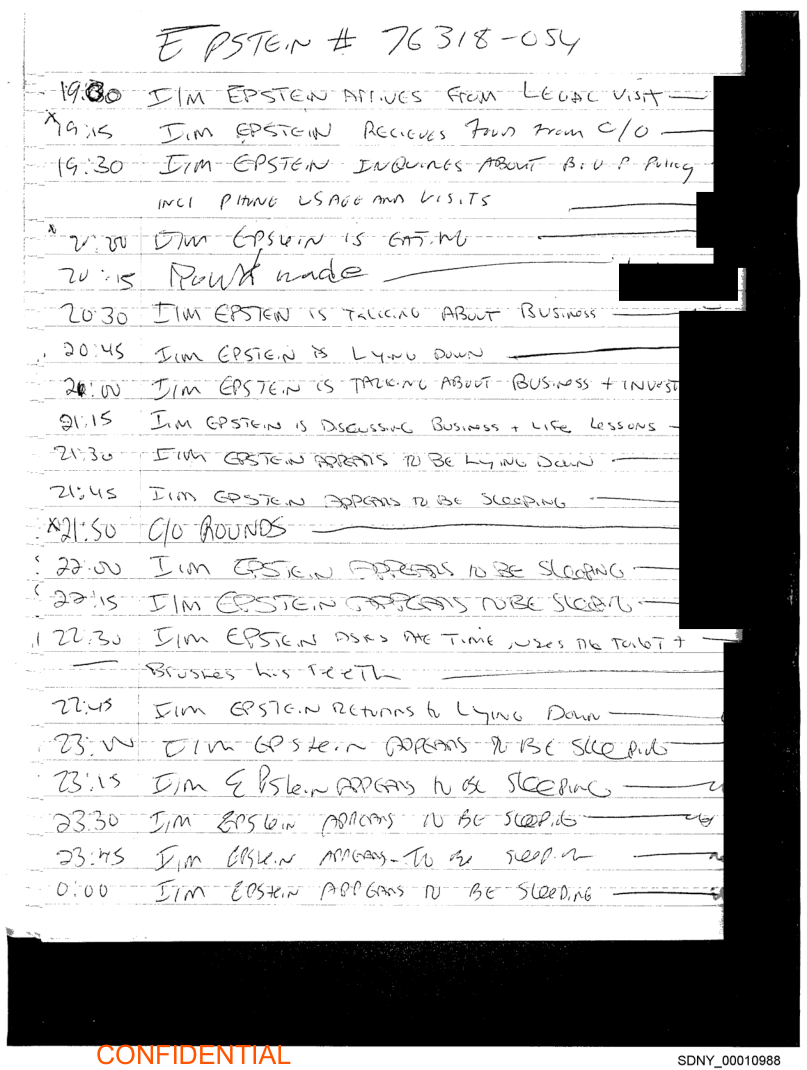 EPSTEIN # 76318-054
I/M EPSTEIN ARRIVES FROM LEGAL VISIT
x 19:15 I/M EPSTEIN RECIEVES FOOD FROM C/O
19:30 I/M EPSTEIN INQUIRES ABOUT B.O.P POLICY
INCL PHONE USAGE AND VISITS
x I/M EPSTEIN IS EATING
20:15 Round made
20:30 I/M EPSTEIN IS TALKING ABOUT BUSINESS
20:45 I/M EPSTEIN IS LYING DOWN
21:00 I/M EPSTEIN IS TALKING ABOUT BUSINESS + INVEST
21:15 I/M EPSTEIN IS DISCUSSING BUSINESS + LIFE LESSONS
21:30 I/M EPSTEIN APPEARS TO BE LYING DOWN
21:45 I/M EPSTEIN APPEARS TO BE SLEEPING
x 21:50 C/O ROUNDS
22:00 I/M EPSTEIN APPEARS TO BE SLEEPING
22:15 I/M EPSTEIN APPEARS TO BE SLEEPING
22:30 I/M EPSTEIN ASKS THE TIME, USES THE TOILET +
Brushes his TEETH
22:45 I/M EPSTEIN RETURNS to LYING DOWN
23:00 I/M EPSTEIN APPEARS TO BE SLEEPING
23:15 I/M EPSTEIN APPEARS TO BE SLEEPING
23:30 I/M EPSTEIN APPEARS TO BE SLEEPING
23:45 I/M EPSTEIN APPEARS TO BE SLEEPING
0:00 I/M EPSTEIN APPEARS TO BE SLEEPING
CONFIDENTIAL
SDNY_00010988